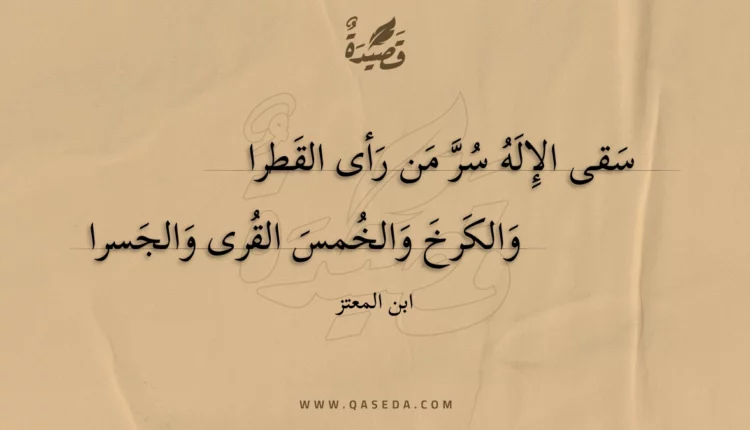 قَصِيدَةٌ
سَقى الإِلَهُ سُرَّ مَن رَأى القَطرا
وَالكَرخَ وَالخُمسَ القُرى وَالجَسرا
ابن المعتز
WWW.QASEDA.COM